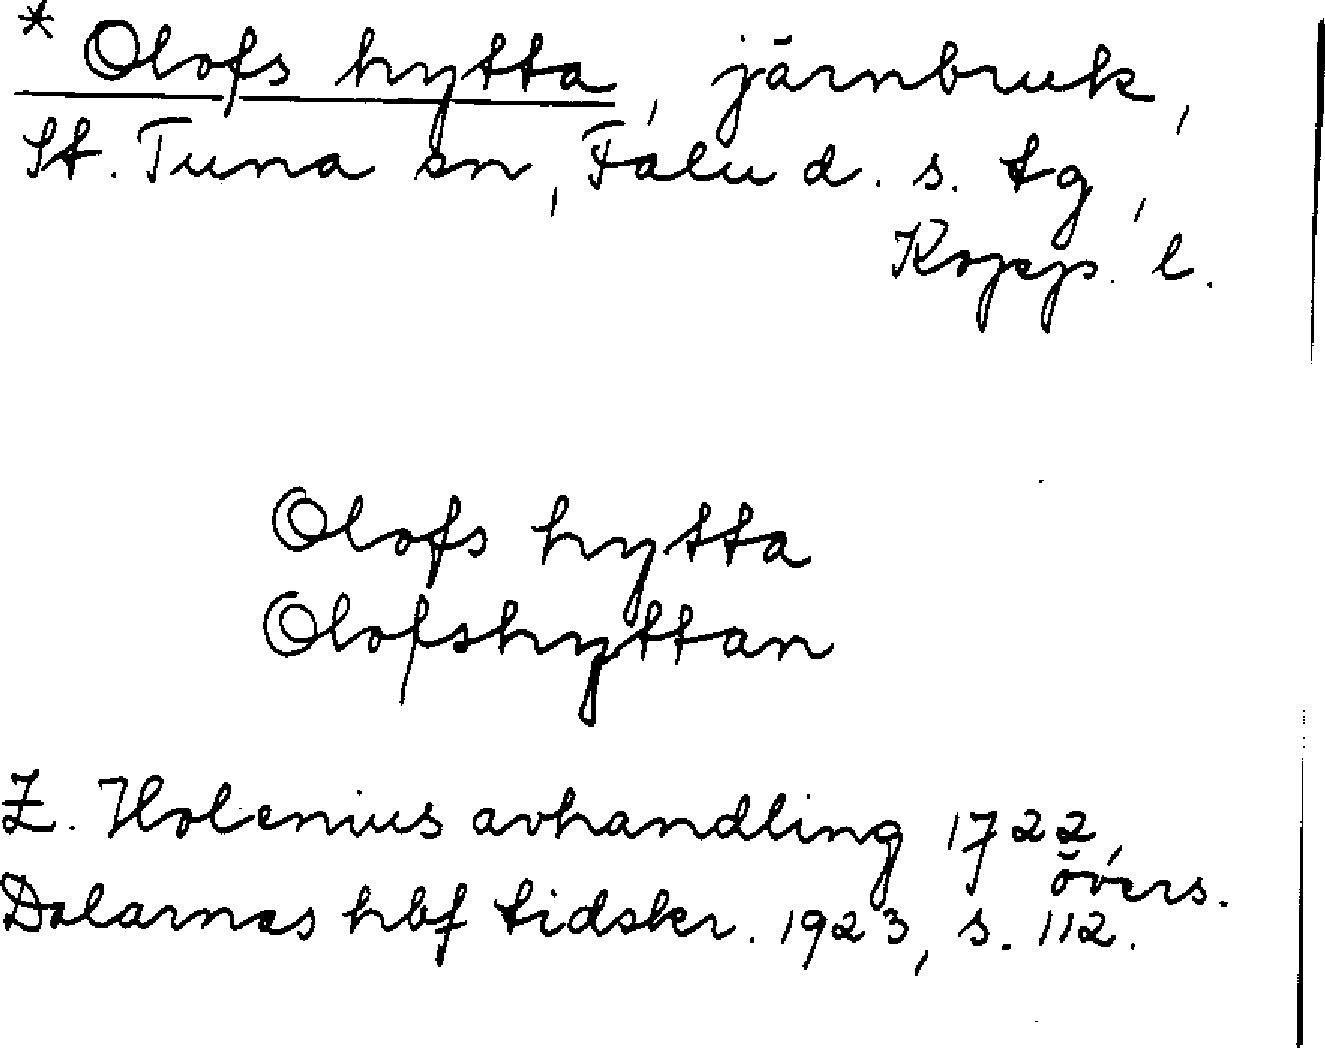 * Olofs hytta, järnbruk,
St. Tuna sn, Falu d. s. tg,
Kopp. l.
Olofs hytta
Olofshyttan
Z. Holenius avhandling 1722,
övers.
Dalarnas hbf tidskr. 1923, s. 112.